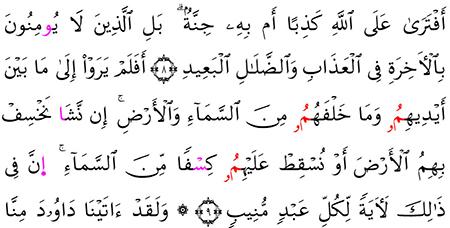 أَفْتَرَىٰ عَلَى ٱللَّهِ كَذِبًا أَم بِهِۦ جِنَّةُۢ ۗ بَلِ ٱلَّذِينَ لَا يُومِنُونَ
بِٱلْأَخِرَةِ فِى ٱلْعَذَابِ وَٱلضَّلَٰلِ ٱلْبَعِيدِ ۝٨ أَفَلَمْ يَرَوْا۟ إِلَىٰ مَا بَيْنَ
أَيْدِيهِمُۥ وَمَا خَلْفَهُمُۥ مِنَ ٱلسَّمَآءِ وَٱلْأَرْضِ ۚ إِن نَّشَا نَخْسِفْ
بِهِمُ ٱلْأَرْضَ أَوْ نُسْقِطْ عَلَيْهِمُۥ كِسْفًا مِّنَ ٱلسَّمَآءِ ۚ إِنَّ فِى
ذَٰلِكَ لَأَيَةً لِّكُلِّ عَبْدٍ مُّنِيبٍ ۝٩ ۞ وَلَقَدْ ءَاتَيْنَا دَاوُۥدَ مِنَّا